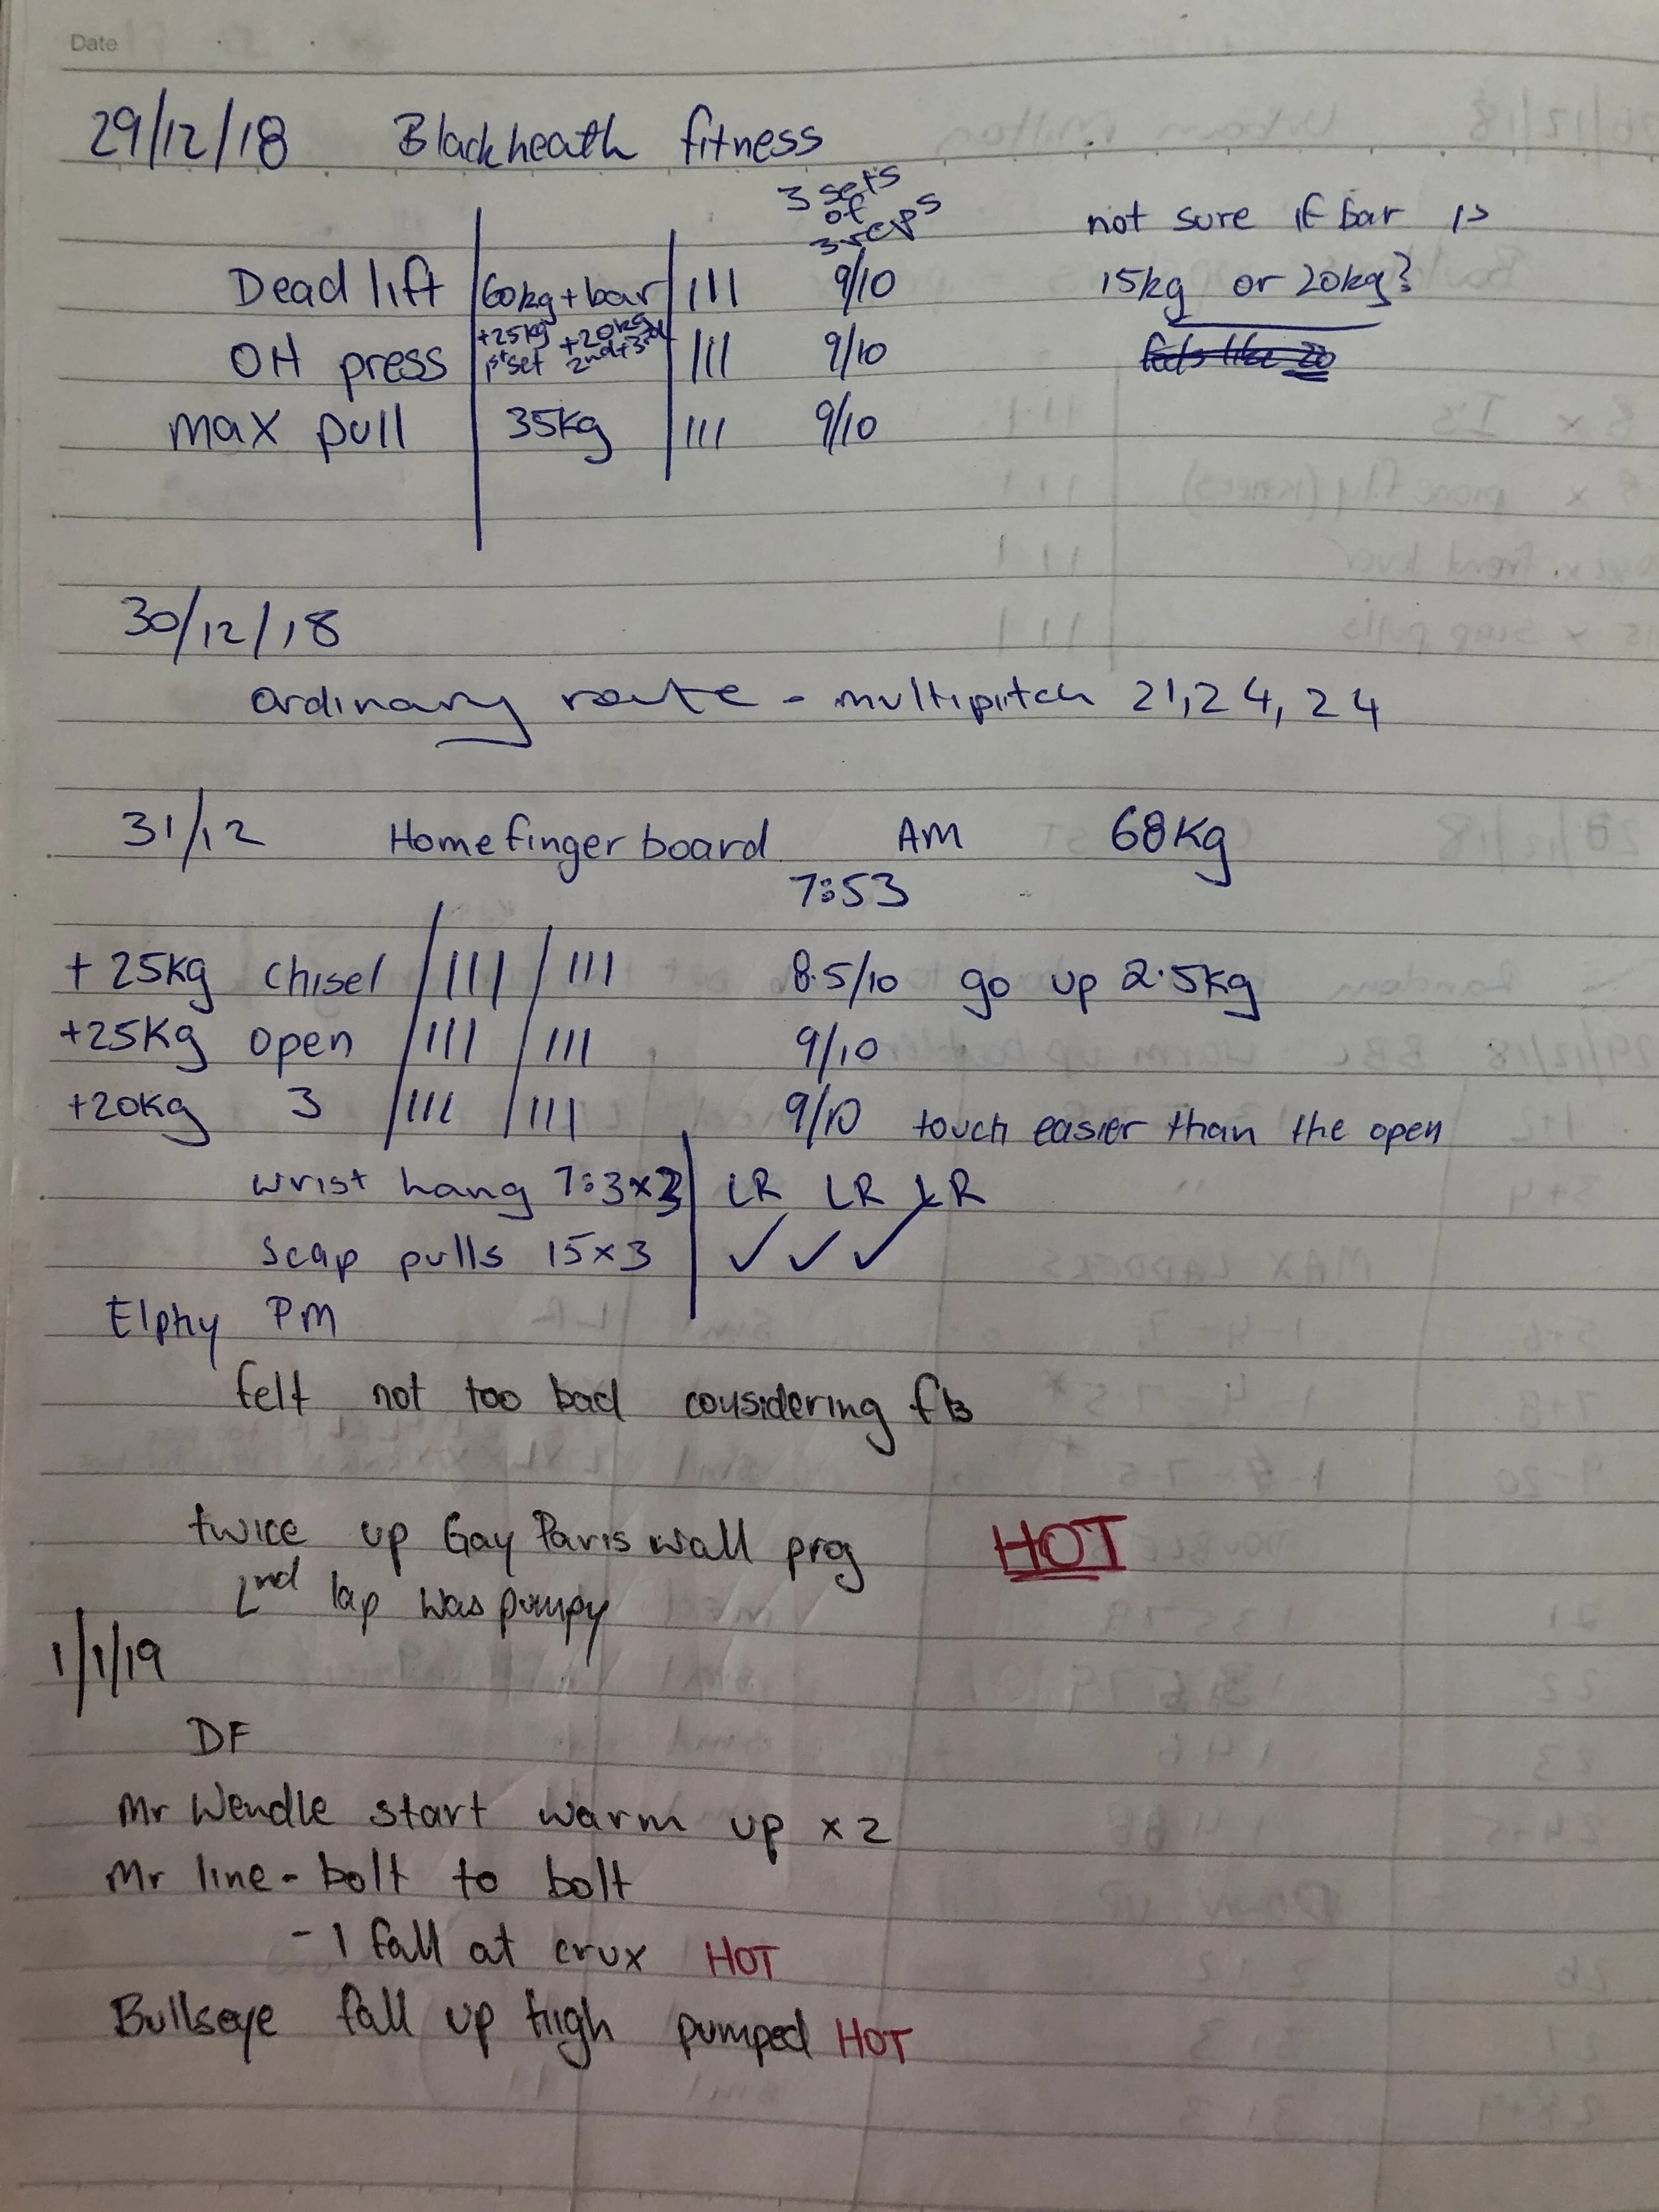 Date
29/12/18 Blackheath fitness
3 sets
of
3 reps
not sure if bar is
15kg or 20kg?
feels like 20
Dead lift 60kg + bar III 9/10
OH press +25kg 1st set +20kg 2nd + 3rd III 9/10
max pull 35kg III 9/10
30/12/18
ordinary route - multipitch 21, 24, 24
31/12 Home finger board AM 68kg
7:53
+ 25kg chisel / III / III 8.5/10 go up 2.5kg
+25kg open / III / III 9/10
+20kg 3 / III / III 9/10 touch easier than the open
wrist hang 7:3x3 LR LR LR
scap pulls 15x3 ✓ ✓ ✓
Elphy PM
felt not too bad considering fb
twice up Gay Paris wall prog HOT
2nd lap was pumpy
1/1/19
DF
Mr Wendle start warm up x2
Mr line - bolt to bolt
- 1 fall at crux HOT
Bullseye fall up high pumped HOT